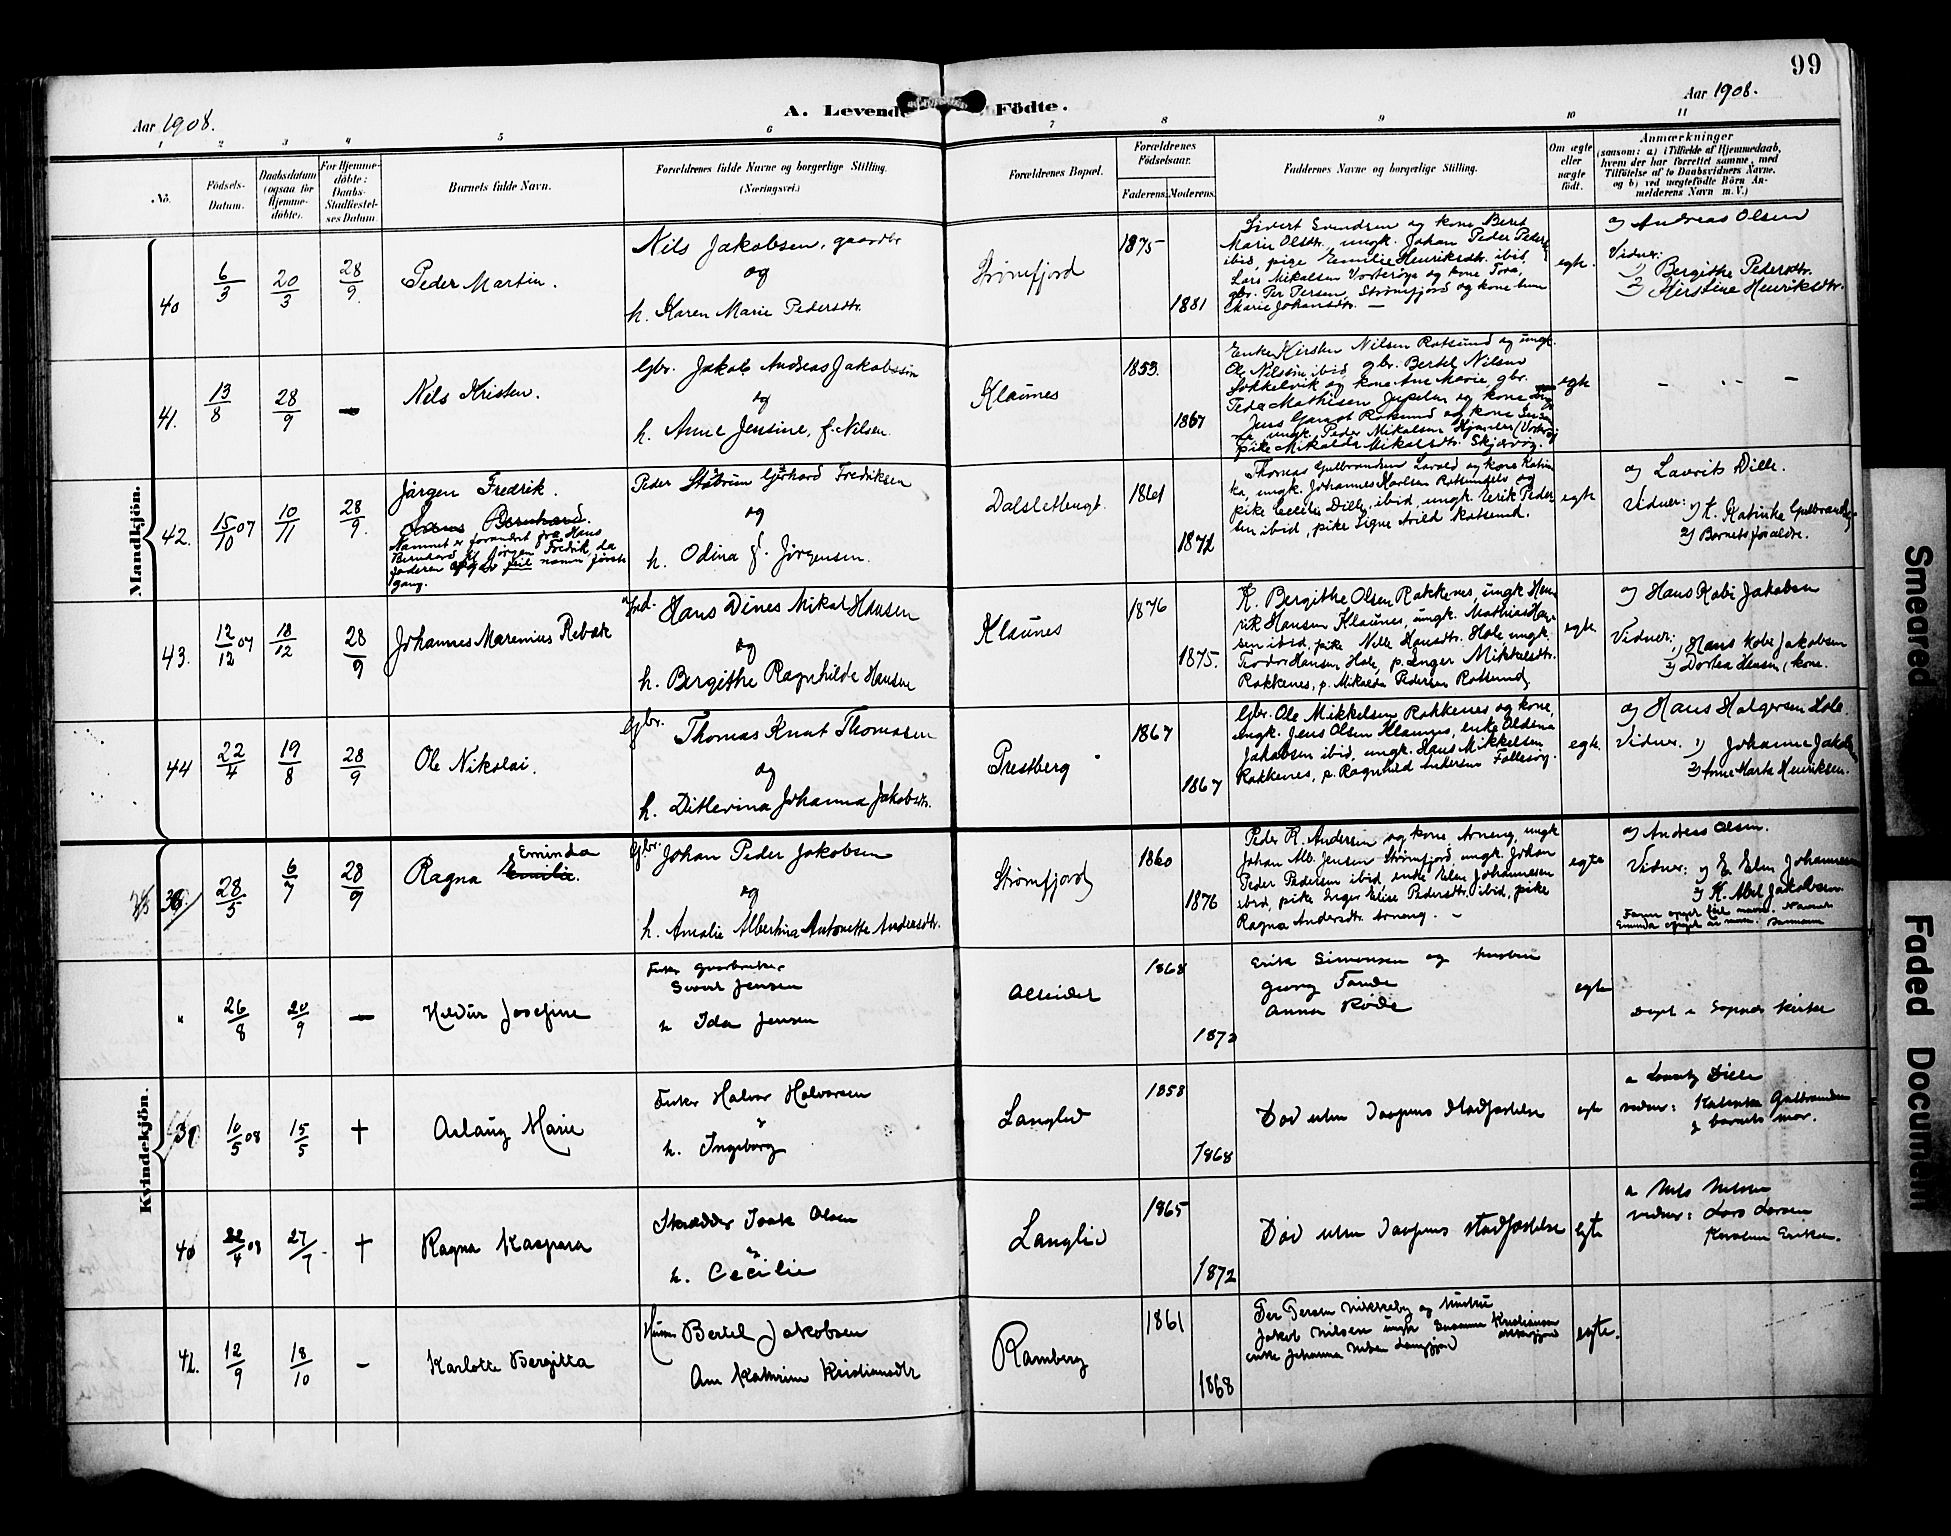 99
Aar 1908.
A. Levende Födte.
Aar 1908.
1 2 3 4 5 6 7 8 9 10 11
No.
Födsels-
Datum.
Daabsdatum
(ogsaa for
Hjemme-
döbte).
For Hjemme-
döbte:
Daabs-
Stadfæstel-
ses Datum
Barnets fulde Navn.
Forældrenes fulde Navne og borgerlige Stilling.
(Næringsvei.)
Forældrenes Bopæl.
Forældrenes
Födselsaar.
Faderens. Moderens.
Faddernes Navne og borgerlige Stilling.
Om ægte
eller
uægte
födt.
Anmærkninger
(saasom: a) i Tilfælde af Hjemmedaab,
hvem der har forrettet samme, med
Tilföielse af to Daabsvidners Navne,
og b) ved uægtefödte Börn An-
melderens Navn m. V.)
Mandkjön.
40
6/3
20/3
28/9.
Peder Martin.
Nils Jakobsen, gaardbr
og
h. Karen Marie Pedersdtr.
Strømfjord
1875
1881
Sivert Svendsen og kone Beret
Marie Olsdtr., ungk. Johan Peder Peders
ibid, pige Emilie Henriksdtr. ibid,
Lars Mikalsen Vorterøy og kone Tora,
gbr. Per Persen, Strømfjord og kone
Marie Johansdtr. —
egte.
a) Andreas Olsen
Vidner:
1) Bergithe Pedersdtr.
2) Kirstine Henriksdtr.
41.
13/8
28/9
—
Nils Kristen.
Gbr. Jakob Andreas Jakobsen
og
h. Anne Jensine, f. Nilsen.
Klaunes
1853.
1867
Enke Kirsten Nilsen Rotsund og ungk.
Ole Nilsen ibid, gbr. Bertel Nilsen
Sokkelvik og kone Ane Marie, gbr.
Peder Mathisen og kone
Jens Rotsund og kone
ungk. Peder Mikalsen
pike Mikalda Mikalsdtr. Skjervøy.
egte
— " —
42.
15/10 07
10/11
28/9.
Jørgen Fredrik.
Hans Bernhard.
Navnet er forandret fra Hans
Bernhard til Jørgen Fredrik, da
faderen opgav feil navn første
gang.
Peder Gjerhard Fredriksen
og
h. Odina f. Jørgensen.
Dalsletteng
1861
1872
Thomas Gulbrandsen og kone Katin
ka, ungk. Johannes Karlsen og
pike Cecilie Dille, ibid, ungk. Erik Peder
sen ibid, pike Signe Arild Rotsund.
egte
a) Lavrits Dille.
Vidner: 1) K. Katinka Gulbrandsen
2) Barnets forældre.
43.
12/12 07
18/12
28/9
Johannes Marenius Rebak
Ind. Hans Dines Nikol Hansen
og
h. Bergithe Ragnhilde Hansen
Klaunes
1876
1875.
K. Bergithe Olsen Rakkenes, ungk Hen
rik Hansen Klaunes, ungk. Mathias Han
sen ibid, pike Nille Hansdtr. Hole, ungk.
Teodor Hansen Hole, p. Inger Mikkelsdtr.
Rakkenes, p. Mikalda Pedersen Rotsund,
egte
a) Hans Kobi Jakobsen
Vidner: 1) Hans Kobi Jakobsen
2) Dortea Hansen, kone.
44
22/4
19/8
28/9
Ole Nikolai.
Gbr. Thomas Knut Thomasen
og
h. Ditlevina Johanna Jakobsdtr.
Prestberg
1867
1867
Gbr. Ole Mikkelsen Rakkenes og kone,
ungk. Jens Olsen Klaunes, enke Oldine
Jakobsen ibid, ungk. Hans Mikkelsen
Rakkenes, p. Ragnhild Andersen Follesøy.
egte
a) Hans Holgersen Hole
Vidner. 1) Johanne Jakobs
2) Anne Marta Henriksen.
Kvindekjön.
28/5
6/7
28/9
Eminda
Ragna Emilie.
Gbr. Johan Peder Jakobsen
og
h. Amalie Albertina Antonette Andersdtr.
Strømfjord
1860
1876
Peder R. Andersen og kone Arneng, ungk
Johan Alb. Jensen Strømfjord, ungk. Johan
Peder Pedersen ibid, enke Elen Johannesen
ibid, pike Inger Elise Pedersdtr. ibid, pike
Ragna Andersdtr. Arneng. —
egte
a) Andreas Olsen.
Vidner: 1) E. Elen Johannessen
2) K. Abel Jakobsen
"
26/8
20/9
—
Hildur Josefine
Sivert Jensen
h Ida Jensen
1868
1872
Erik Simonsen og hustru
Georg
Anna
egte
Døpt i Sopnes kirke
10/5 08
15/5
†
Aslaug Marie
Fisker Halvor Halvorsen
&
h. Ingeborg
Langlid
1858
1868
Død uten daapens stadfæstelse
egte
a Lauritz Dille
vidner: Katinka Gulbrandsen
& barnets mor.
22/4 08
27/7
†
Ragna Kaspara
Skrædder Isak Olsen
&
h. Cecilie
Langlid
1865
1872
Død uten daapens stadfæstelse
egte
a Nils Nilsen
vidner: Lars Larsen
42.
12/9
18/10
—
Karlotte Bergitta
Bertel Jakobsen
Ane Katrine Kristiansdtr
Ramberg
1861
1868
Per Persen og hustru
Jakob Nilsen
enke Johanna Nilsen Langfjord
egte.
Smeared
Faded Document